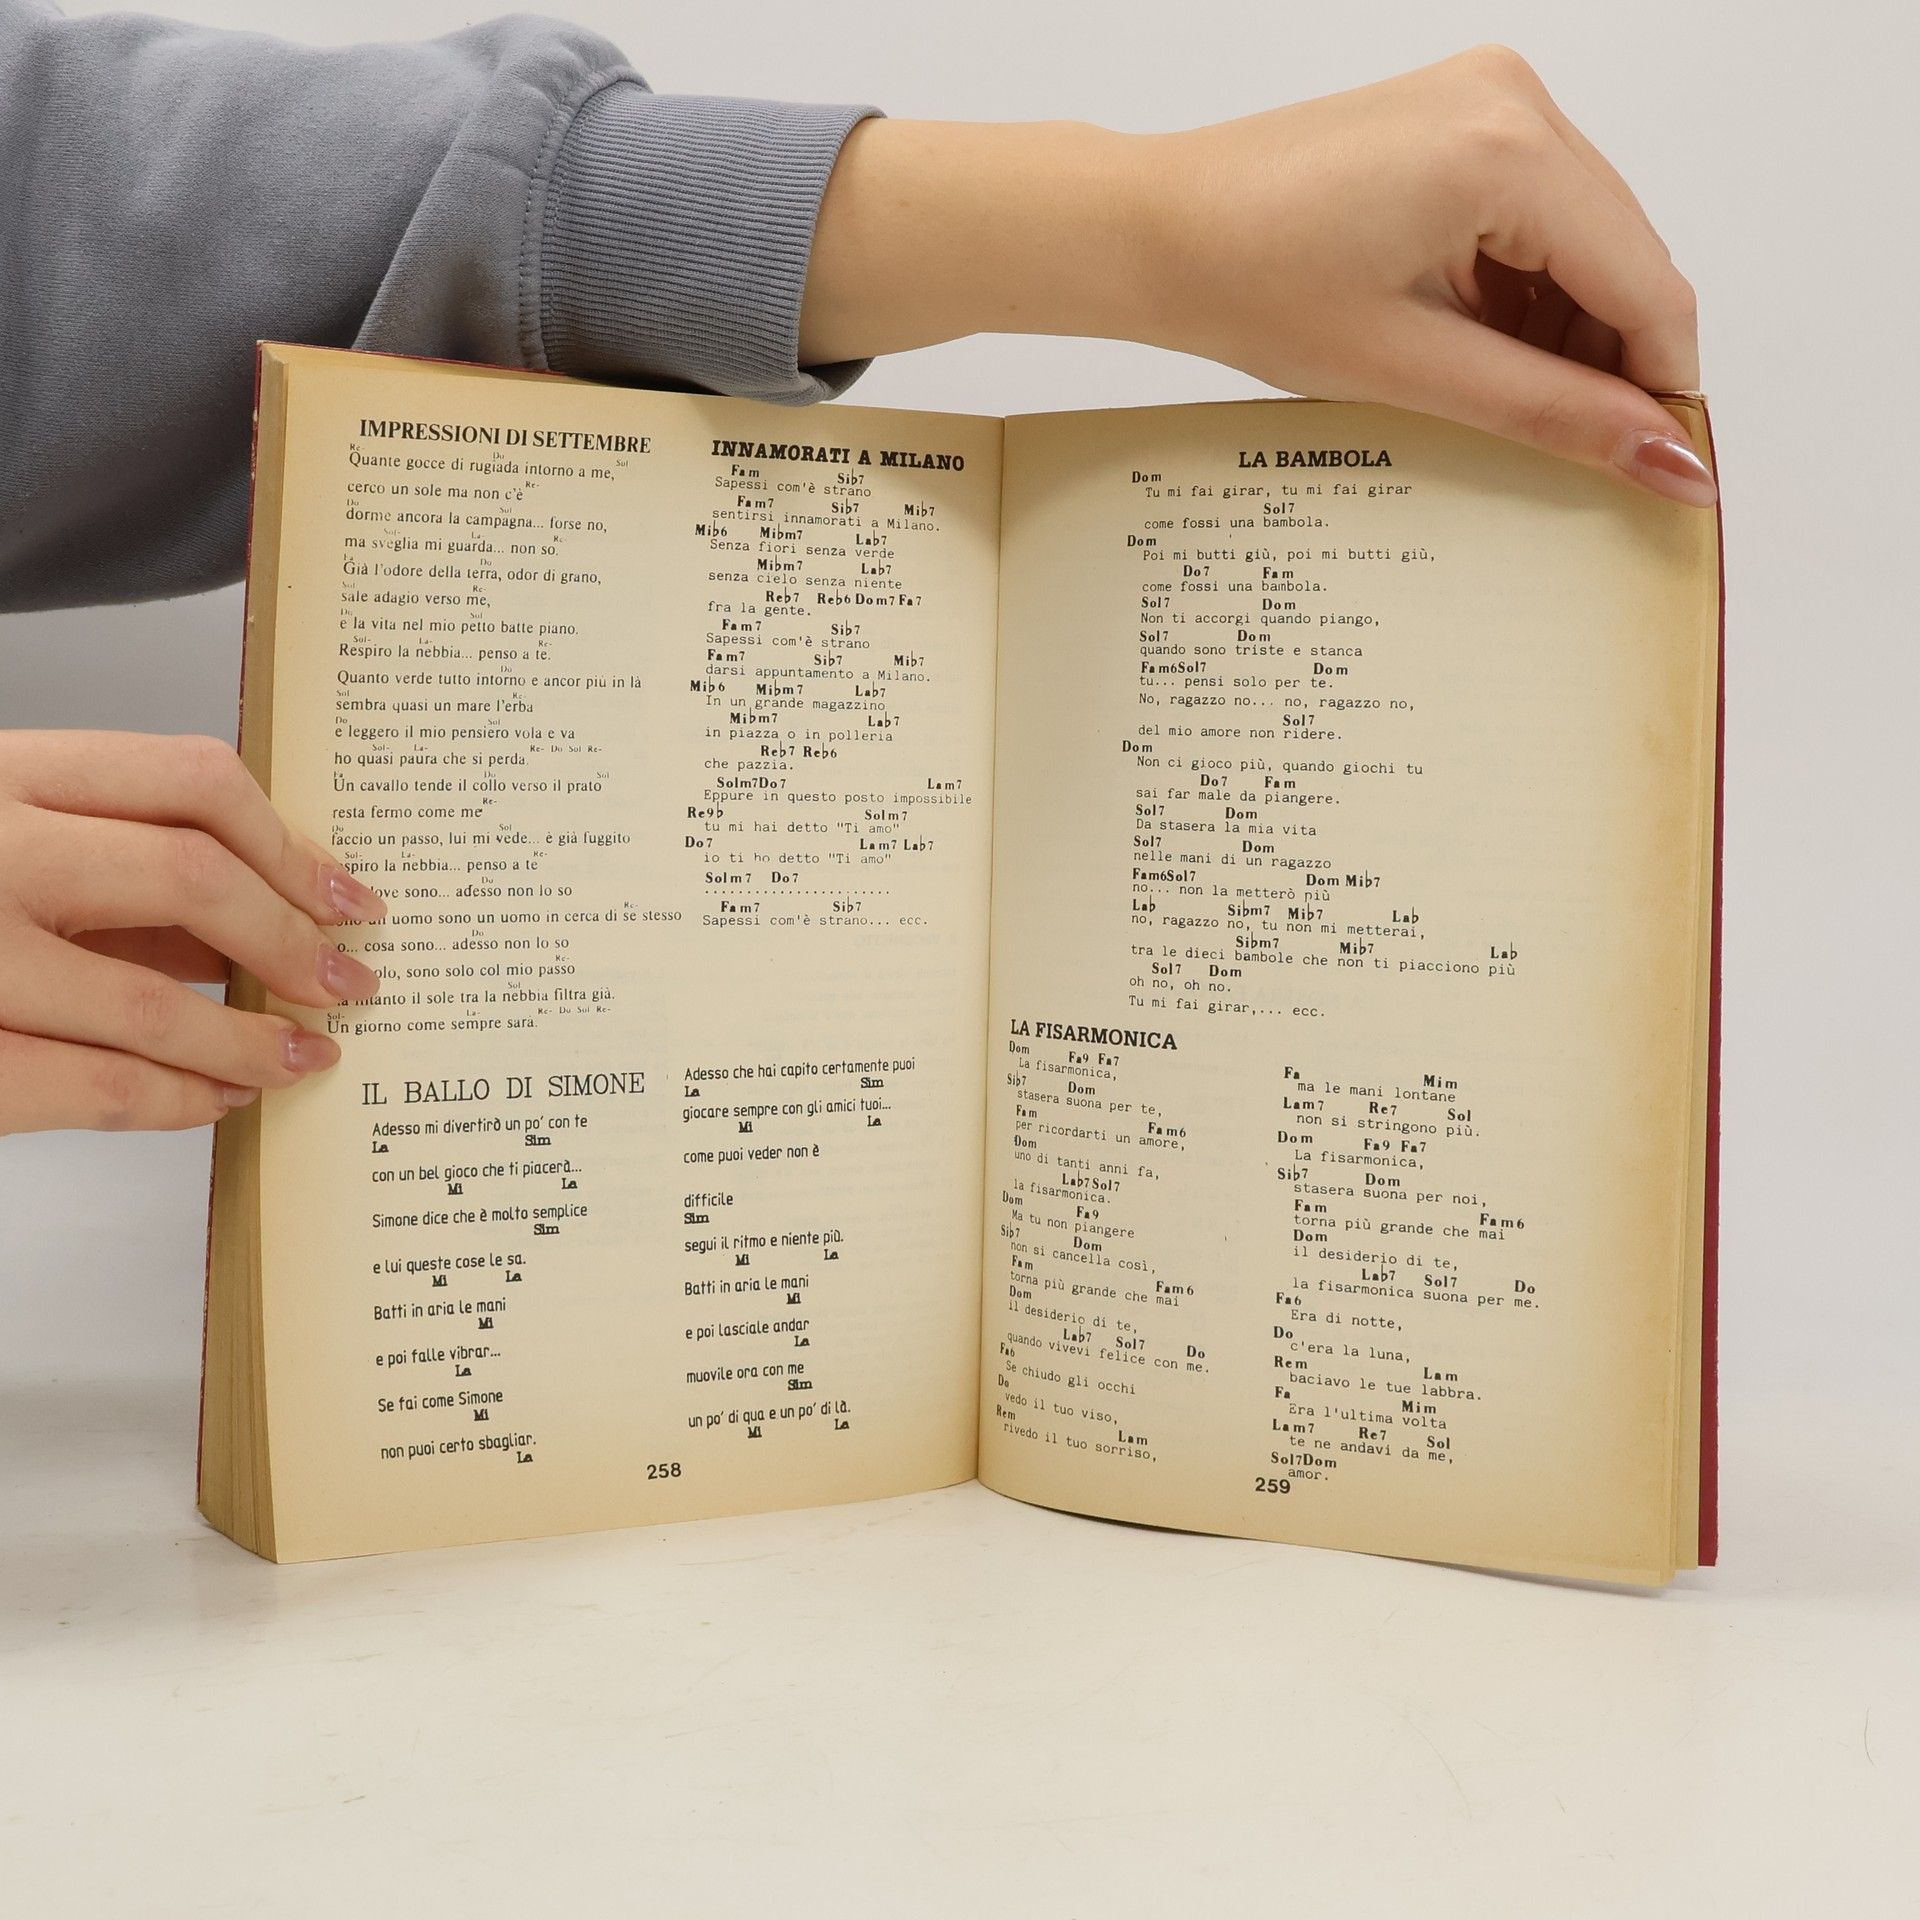 IMPRESSIONI DI SETTEMBRE
Re- Do Sol
Quante gocce di rugiada intorno a me,
Re-
cerco un sole ma non c'è
Do Sol
dorme ancora la campagna... forse no,
Sol- La- Re-
ma sveglia mi guarda... non so.
Fa Do
Già l'odore della terra, odor di grano,
Sol Re-
sale adagio verso me,
Do Sol
e la vita nel mio petto batte piano.
Sol- La- Re-
Respiro la nebbia... penso a te.
Do
Quanto verde tutto intorno e ancor più in là
Sol Re-
sembra quasi un mare l'erba
Do Sol
e leggero il mio pensiero vola e va
Sol- La- Re- Do Sol Re-
ho quasi paura che si perda.
Fa Do Sol
Un cavallo tende il collo verso il prato
Re-
resta fermo come me
Do Sol
faccio un passo, lui mi vede... è già fuggito
Sol- La- Re-
la nebbia... penso a te
Do
sono... adesso non lo so
Re-
un uomo sono un uomo in cerca di se stesso
Do
cosa sono... adesso non lo so
Re-
sono solo col mio passo
Sol
il sole tra la nebbia filtra già.
Sol- La- Re- Do Sol Re-
Un giorno come sempre sarà.
INNAMORATI A MILANO
Fam Sib7
Sapessi com'è strano
Fam7 Sib7 Mib7
sentirsi innamorati a Milano.
Mib6 Mibm7 Lab7
Senza fiori senza verde
Mibm7 Lab7
senza cielo senza niente
Reb7 Reb6 Dom7 Fa7
fra la gente.
Fam7 Sib7
Sapessi com'è strano
Fam7 Sib7 Mib7
darsi appuntamento a Milano.
Mib6 Mibm7 Lab7
In un grande magazzino
Mibm7 Lab7
in piazza o in polleria
Reb7 Reb6
che pazzia.
Solm7Do7 Lam7
Eppure in questo posto impossibile
Re9b Solm7
tu mi hai detto "Ti amo"
Do7 Lam7 Lab7
io ti ho detto "Ti amo"
Solm7 Do7
.......................
Fam7 Sib7
Sapessi com'è strano... ecc.
IL BALLO DI SIMONE
Adesso mi divertirò un po' con te
La Sim
con un bel gioco che ti piacerà...
Mi La
Simone dice che è molto semplice
Sim
e lui queste cose le sa.
Mi La
Batti in aria le mani
Mi
e poi falle vibrar...
La
Se fai come Simone
Mi
non puoi certo sbagliar.
La
Adesso che hai capito certamente puoi
La Sim
giocare sempre con gli amici tuoi...
Mi La
come puoi veder non è
difficile
Sim
segui il ritmo e niente più.
Mi La
Batti in aria le mani
Mi
e poi lasciale andar
La
muovile ora con me
Sim
un po' di qua e un po' di là.
Mi La
258
LA BAMBOLA
Dom
Tu mi fai girar, tu mi fai girar
Sol7
come fossi una bambola.
Dom
Poi mi butti giù, poi mi butti giù,
Do7 Fam
come fossi una bambola.
Sol7 Dom
Non ti accorgi quando piango,
Sol7 Dom
quando sono triste e stanca
Fam6Sol7 Dom
tu... pensi solo per te.
No, ragazzo no... no, ragazzo no,
Sol7
del mio amore non ridere.
Dom
Non ci gioco più, quando giochi tu
Do7 Fam
sai far male da piangere.
Sol7 Dom
Da stasera la mia vita
Sol7 Dom
nelle mani di un ragazzo
Fam6Sol7 Dom Mib7
no... non la metterò più
Lab Sibm7 Mib7 Lab
no, ragazzo no, tu non mi metterai,
Sibm7 Mib7 Lab
tra le dieci bambole che non ti piacciono più
Sol7 Dom
oh no, oh no.
Tu mi fai girar,... ecc.
LA FISARMONICA
Dom Fa9 Fa7
La fisarmonica,
Sib7 Dom
stasera suona per te,
Fam Fam6
per ricordarti un amore,
Dom
uno di tanti anni fa,
Lab7Sol7
la fisarmonica.
Dom Fa9
Ma tu non piangere
Sib7 Dom
non si cancella così,
Fam Fam6
torna più grande che mai
Dom
il desiderio di te,
Lab7 Sol7 Do
quando vivevi felice con me.
Fa6
Se chiudo gli occhi
Do
vedo il tuo viso,
Rem Lam
rivedo il tuo sorriso,
Fa Mim
ma le mani lontane
Lam7 Re7 Sol
non si stringono più.
Dom Fa9 Fa7
La fisarmonica,
Sib7 Dom
stasera suona per noi,
Fam Fam6
torna più grande che mai
Dom
il desiderio di te,
Lab7 Sol7 Do
la fisarmonica suona per me.
Fa6
Era di notte,
Do
c'era la luna,
Rem Lam
baciavo le tue labbra.
Fa Mim
Era l'ultima volta
Lam7 Re7 Sol
te ne andavi da me,
Sol7Dom
amor.
259